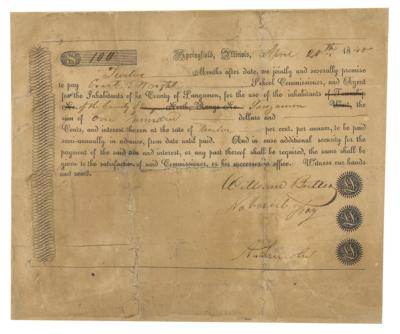 $ 100 Springfield, Illinois, April 28th 1840
Twelve Months after date, we jointly and severally promise
to pay Erastus Wright School Commissioner, and Agent
for the Inhabitants of the County of Sangamon, for the use of the inhabitants of Township
No. of the County of North, Range No. Sangamon West, the
sum of One hundred dollars and
Cents, and interest thereon at the rate of twelve per cent. per annum, to be paid
semi-annually in advance, from date until paid. And in case additional security for the
payment of the said sum and interest, or any part thereof shall be required, the same shall be
given to the satisfaction of said Commissioner, or his successor in office. Witness our hands
and seals.
William Butler
A. Lincoln